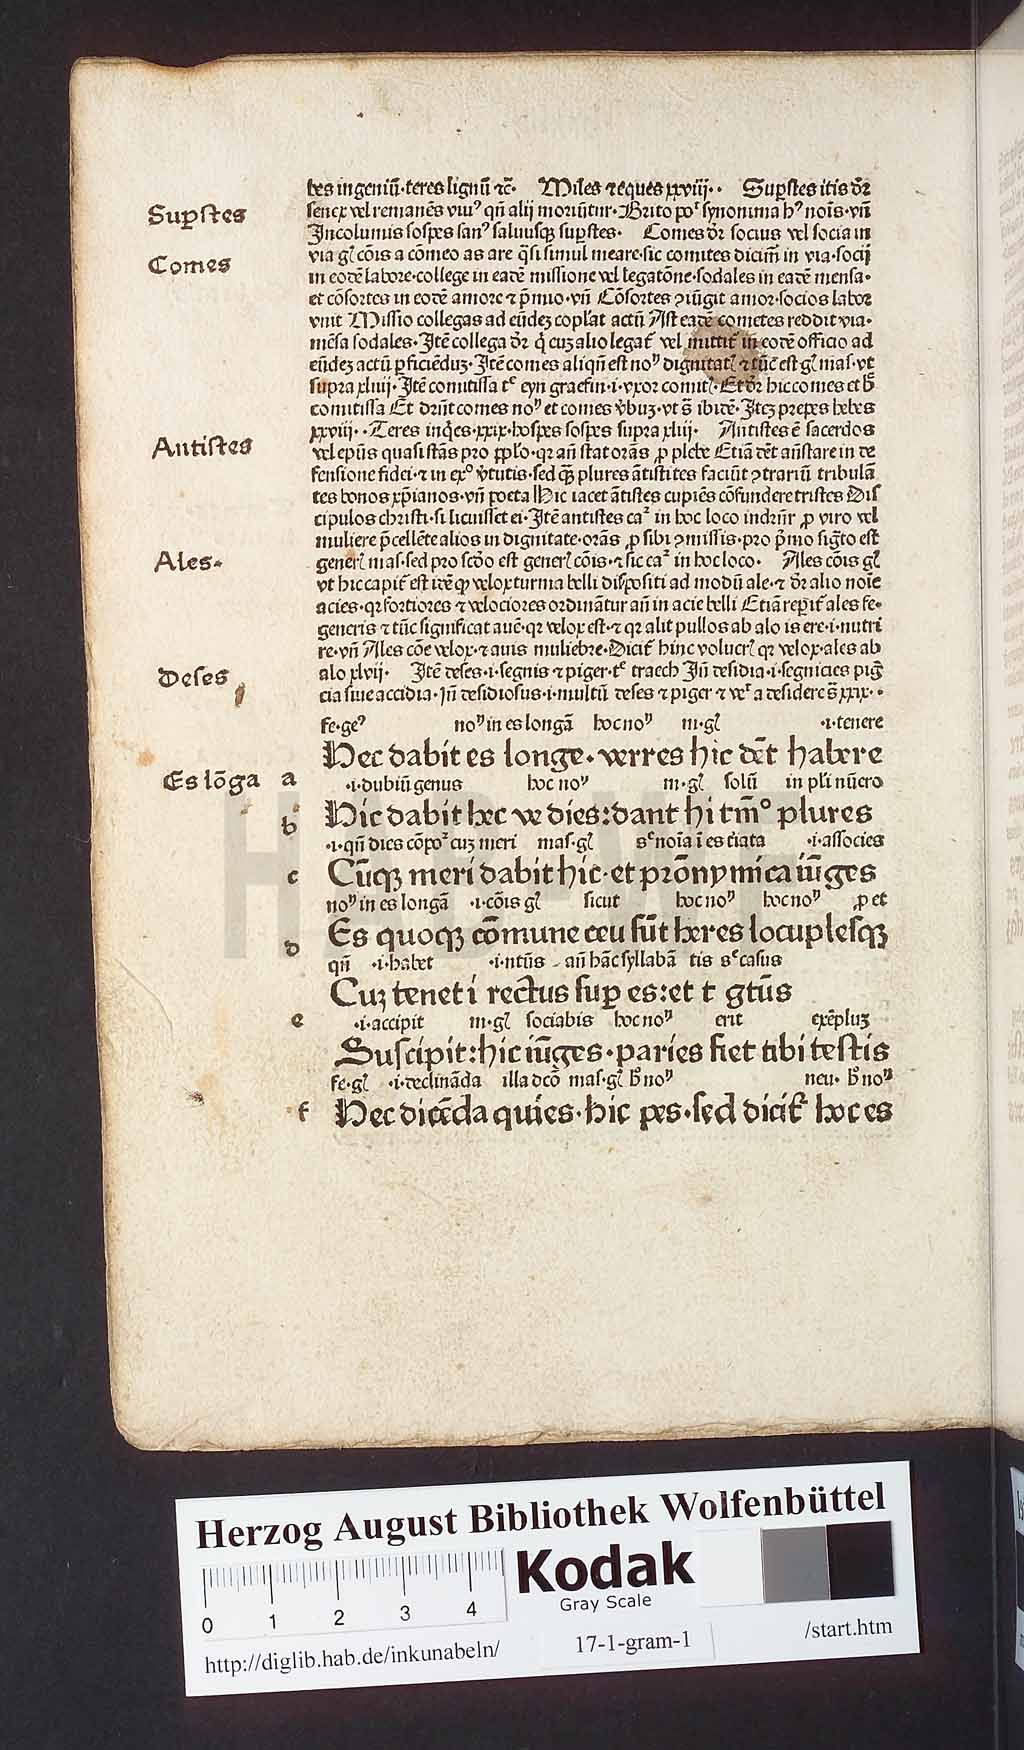 bes ingeniū·teres lignū ⁊c̄· Miles ⁊ eques xxviij·· Suꝑstes itis dr̄
Suꝑstes
senex vel remanēs viuꝰ qn̄ alij moriūtur·Brito poꝛ synonima hꝰ noīs·vn̄
Incolumis sospes sanꝰ saluusqꝫ suꝑstes· Comes dr̄ socius vel socia in
Comes
via gl̄ cōis a cōmeo as are q̄si simul meare·sic comites dicim̄ in via·socij
in eodē labore·college in eadē missione vel legatōne·sodales in eadē mensa·
et cōsortes in eodē amore ⁊ p̄mio·vn̄ Cōsortes ꝯiūgit amor·socios labor
vnit Missio collegas ad eūdeꝫ copl̄at actū Ast eadē cometes reddit via·
mēsa sodales·Itē collega dr̄ q̇ cuꝫ alio legat᷑ vel mittit᷑ in eodē officio ad
eūdeꝫ actū ꝑficiēduꝫ·Itē comes aliqn̄ est noᷠ dignitatꝭ ⁊ tūc est gꝭ mas·vt
supra xliiij·Itē comitissa tᷓ eyn graefin·i·vxor comitꝭ·Et dr̄ hic comes et h̄
comitissa Et drn̄t comes noᷠ et comes v̄buꝫ·vt s̄ ibidē·Iteꝫ prepes hebes
xxviij··Teres inq̇es·xxix·hospes sospes supra xliij· Antistes ē sacerdos
Antistes
vel epūs quasi stās pro ꝑplo·qꝛ an̄ stat orās ꝓ plebe Etiā dēt an̄stare in de
fensione fidei·⁊ in exᵒ v̄tutis·sed qꝫ plures ātistites faciūt ꝯtrariū tribulā
tes bonos xp̄ianos·vn̄ poeta Hic iacet ātistes cupiēs cōfundere tristes Dis
cipulos christi·si licuisset ei·Itē antistes caꝛ in hoc loco indrn̄r ꝓ viro vel
muliere p̄cellēte alios in dignitate·orās ꝓ sibi ꝯmissis·pro p̄mo sigto est
Ales·
generꝭ mas·sed pro scd̄o est generꝭ cōis·⁊ sic caꝛ in hoc loco· Ales cōis gꝭ
vt hic capit᷑ est idē qꝫ velox turma belli dispositi ad modū ale·⁊ dr̄ alio noīe
acies·qꝛ fortiores ⁊ velociores ordināntur an̄ in acie belli Etiā reꝑit᷑ ales fe·
generis ⁊ tūc significat auē·qꝛ velox est·⁊ qꝛ alit pullos ab alo is ere·i·nutri
re·vn̄ Ales cōe velox·⁊ auis muliebre·Dicit᷑ hinc volucrꝭ qꝛ velox·ales ab
Deses
alo xlvij· Itē deses·i·segnis ⁊ piger·tᷓ traech In̄ desidia·i·segnicies pig̃
cia siue accidia·In̄ desidiosus·i·multū deses ⁊ piger ⁊ veᷓ a desidere s̄ xxix··
fe·geꝰ noᷠ in es longā hoc noᷠ m·gꝭ ·i·tenere
Hec dabit es longe·verres hic dēt habere
Es lōga a ·i·dubiū genus hoc noᷠ m·gꝭ solū in pl̄i nūero
b Hic dabit hec ve dies:dant hi tm̄ᵒ plures
·i·qn̄ dies cōpoꝛ cuꝫ meri mas·gꝭ sᷓ noīa ī es tīata ·i·associes
c Cūqꝫ meri dabit hic·et prōnymica iūges
noᷠ in es longā ·i·cōis gꝭ sicut hoc noᷠ hoc noᷠ ꝓ et
d Es quoqꝫ cōmune ceu sūt heres locuplesqꝫ
qn̄ ·i·habet ·i·ntūs an̄ hāc syllabā tis sᷓ casus
Cuꝫ tenet i rectus suꝑ es:et t gtūs
e ·i·accipit m·gꝭ sociabis hoc noᷠ erit exēpluꝫ
Suscipit:hic iūges·paries fiet tibi testis
fe·gꝭ ·i·declināda illa dcō mas·gꝭ h̄ noᷠ neu· h̄ noᷠ
f Hec dicēda quies·hic pes·sed dicit᷑ hoc es
Herzog August Bibliothek Wolfenbüttel
Kodak
Gray Scale
0 1 2 3 4
http://diglib.hab.de/inkunabeln/ 17-1-gram-1 /start.htm